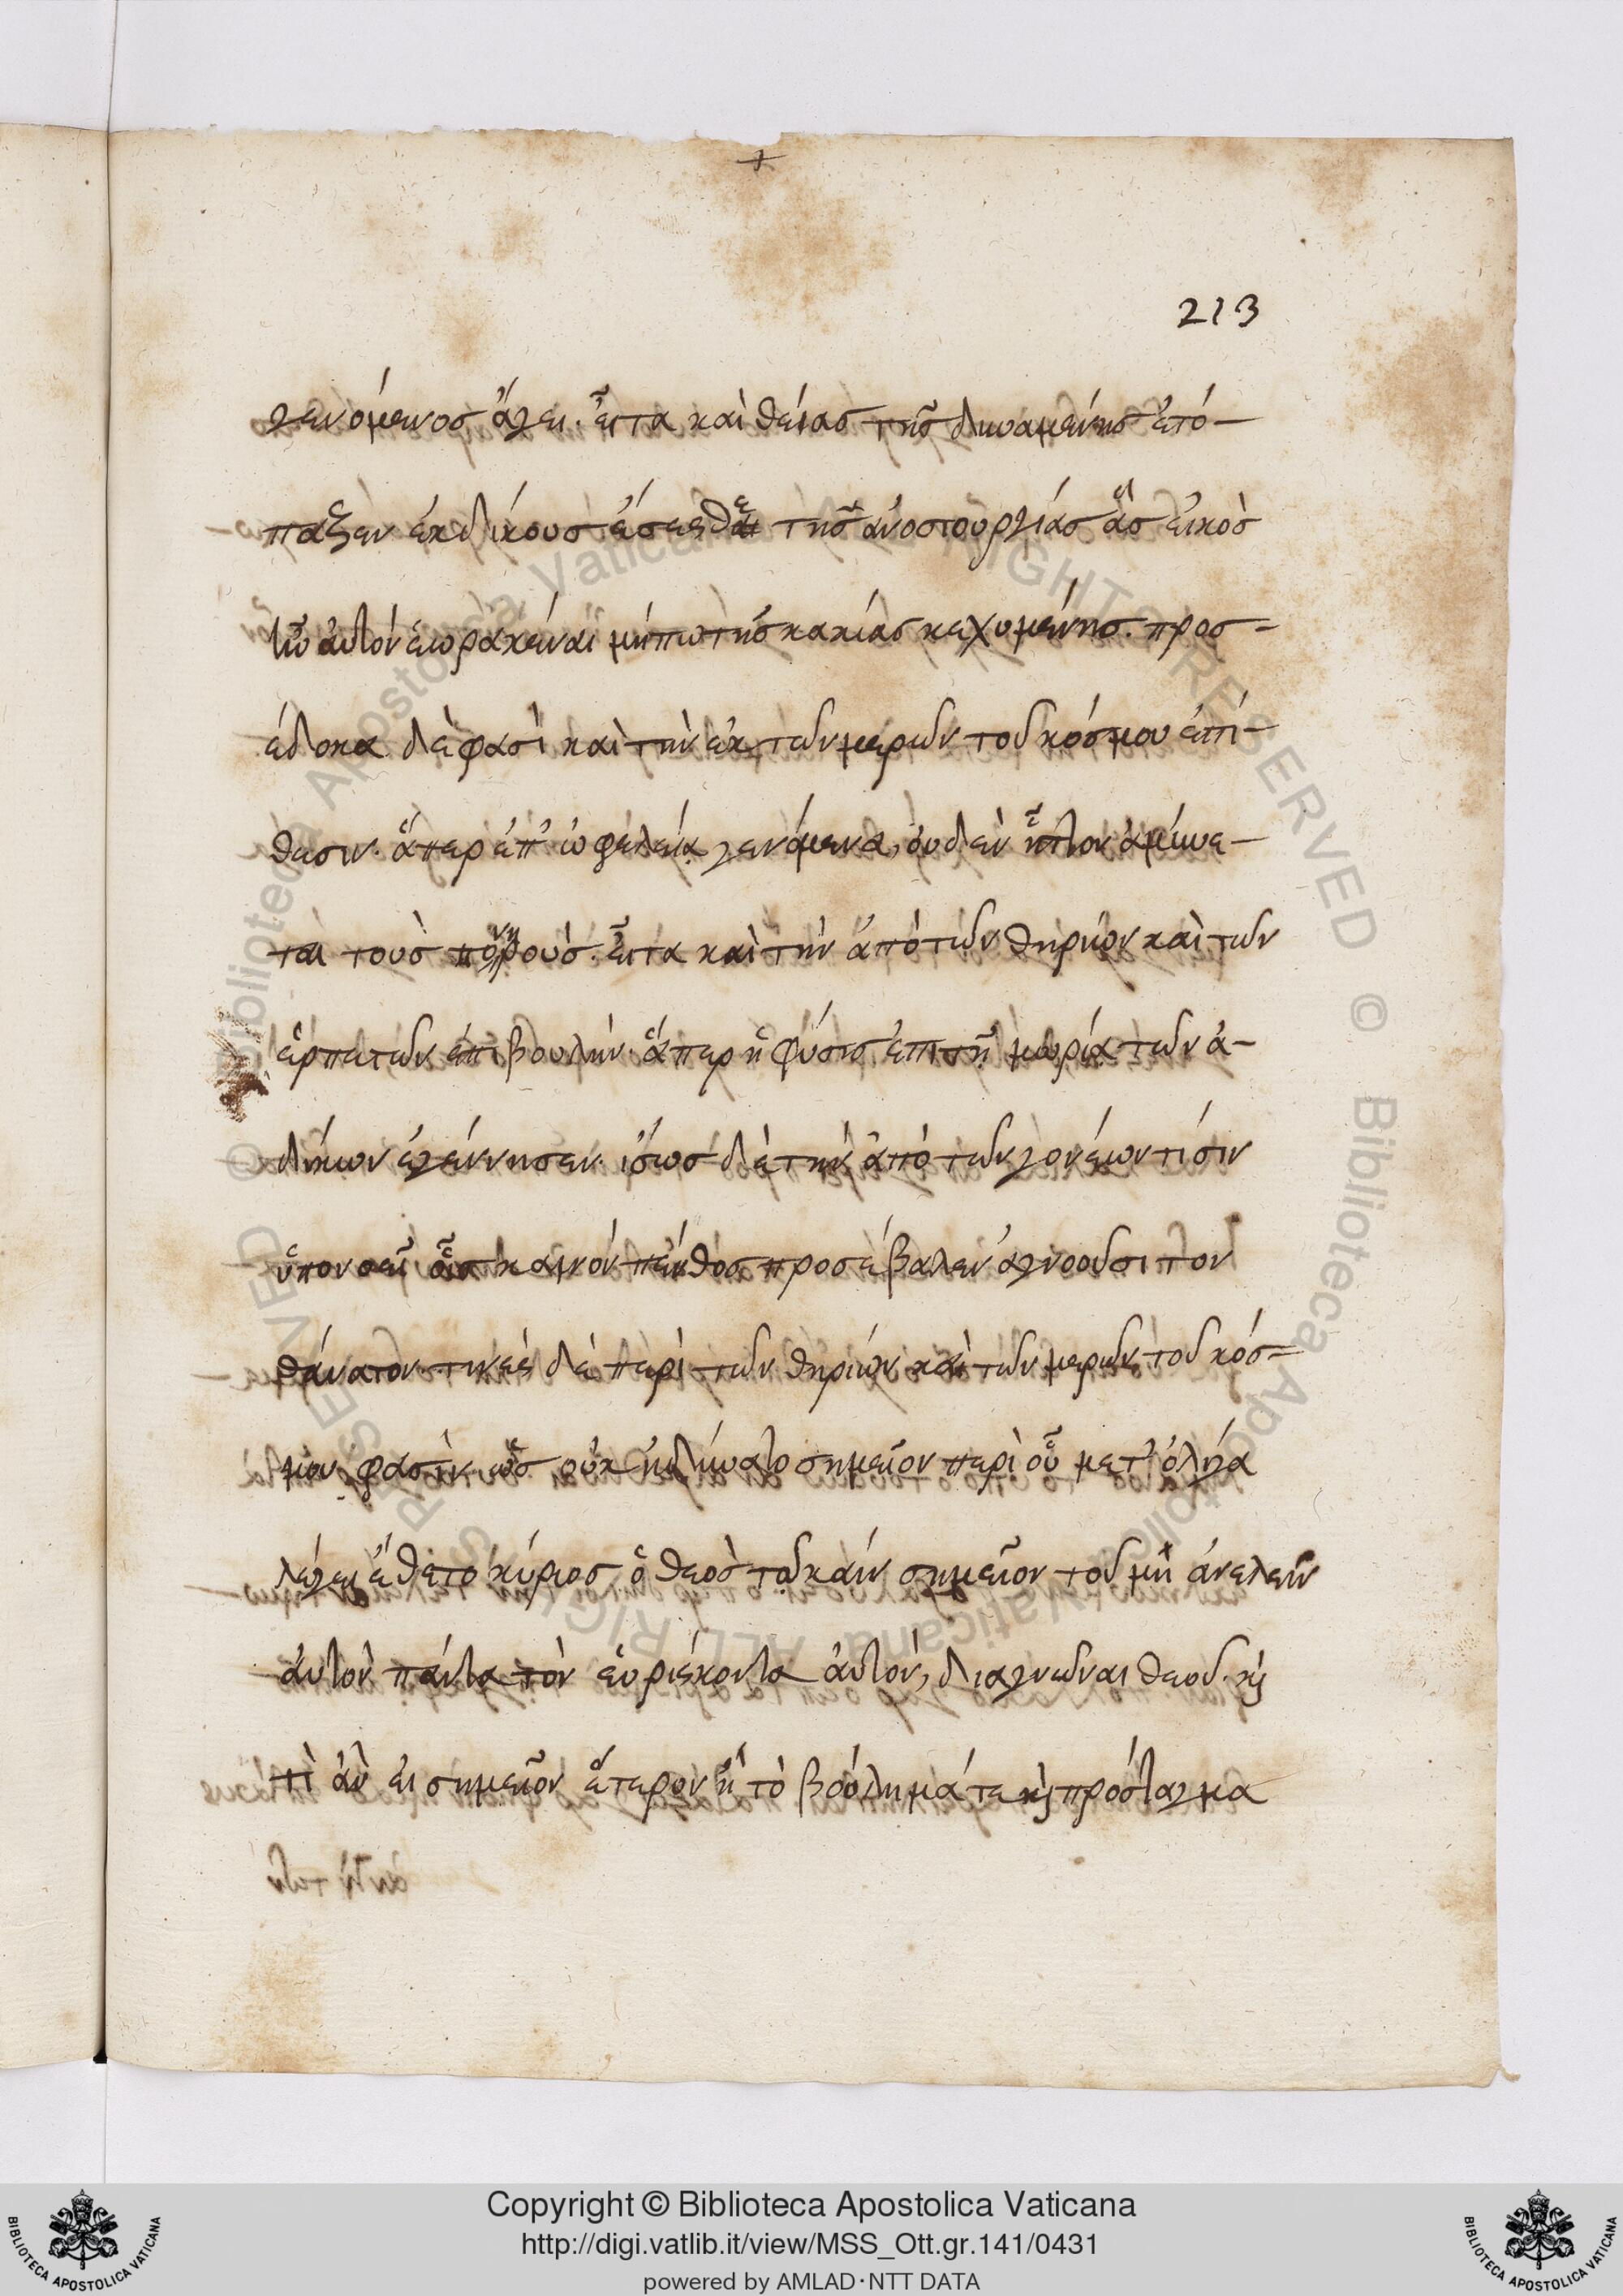 213
γενόμενος ἄγει. εἶτα καὶ θείας τῆς δυναμένης ἐτό-
παζεν ἐκδίκους ἔσεσθαι τῆς ἀνοσιουργίας ἃς εἰκὸς
ἦν αὐτὸν ἑωρακέναι μήπω τῆς κακίας κεχυμένης. προσ=
εδόκα δὲ φασὶ καὶ τὴν ἐκ τῶν μερῶν τοῦ κόσμου ἐπί-
θεσιν. ἅπερ ἐπ' ὠφελείᾳ γενόμενα, οὐδὲν ἧττον ἀμύνε-
ται τοὺς πονηροὺς. εἶτα καὶ τὴν ἀπὸ τῶν θηρίων καὶ τῶν
ἑρπετῶν ἐπιβουλήν. ἅπερ ἡ φύσις ἐπὶ τῇ μωρίᾳ τῶν ἀ-
δίκων ἐγέννησεν. ἴσως δὲ τὴν ἀπὸ τῶν γονέων τίσιν
ὑπονοεῖ οἷς καινὸν πένθος προσέβαλεν ἀγνοοῦσι τὸν
θάνατον. τινὲς δὲ περὶ τῶν θηρίων καὶ τῶν μερῶν τοῦ κόσ=
μου φασὶν ὡς οὐκ ἠδύνατο σημεῖον περὶ οὗ μετ' ὀλίγα
λέγει ἔθετο κύριος ὁ θεὸς τῷ κάϊν σημεῖον τοῦ μὴ ἀνελεῖν
αὐτὸν πάντα τὸν εὑρίσκοντα αὐτόν, διαγνῶναι θεοῦ. κỳ
τὶ ἂν εἰ σημεῖον ἕτερον ἢ τὸ βούλημά τε κỳ πρόσταγμα
Copyright © Biblioteca Apostolica Vaticana
http://digi.vatlib.it/view/MSS_Ott.gr.141/0431
powered by AMLAD·NTT DATA